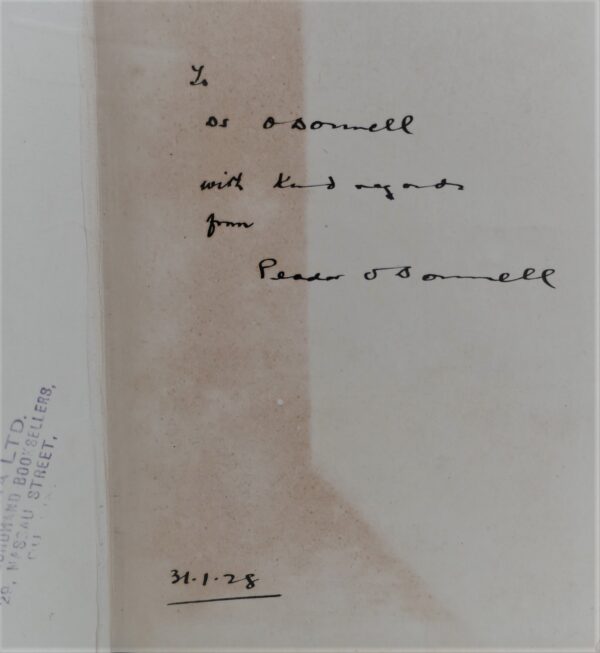 To
Dr O'Donnell
with kind regards
from
Peadar O'Donnell
31.1.28
LTD.
BOOKSELLERS,
29, NASSAU STREET,